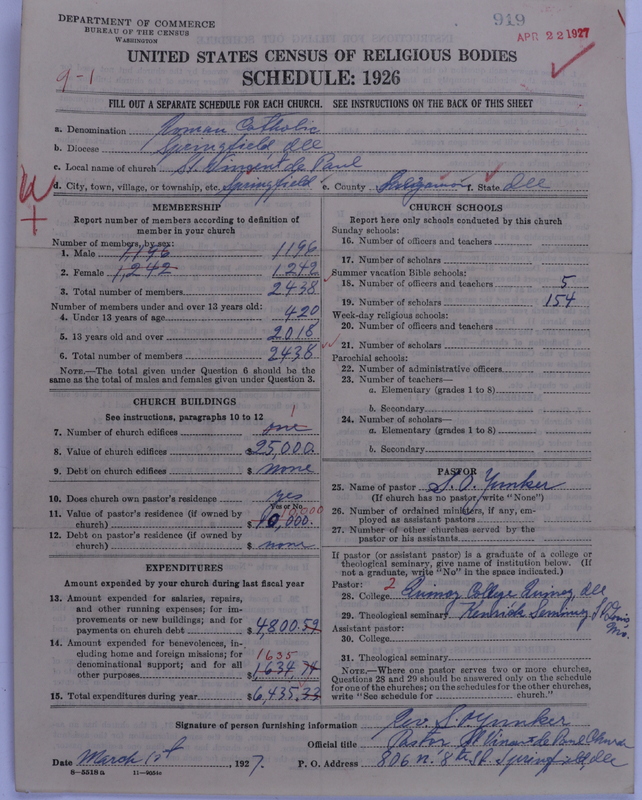 DEPARTMENT OF COMMERCE
BUREAU OF THE CENSUS
WASHINGTON
919
APR 22 1927
UNITED STATES CENSUS OF RELIGIOUS BODIES
SCHEDULE: 1926
9-1
FILL OUT A SEPARATE SCHEDULE FOR EACH CHURCH. SEE INSTRUCTIONS ON THE BACK OF THIS SHEET
a. Denomination Roman Catholic
b. Diocese Springfield, Ill
c. Local name of church St. Vincent de Paul
d. City, town, village, or township, etc. Springfield e. County Sangamon f. State Ill
MEMBERSHIP
Report number of members according to definition of
member in your church
Number of members, by sex:
1. Male 1196 1196
2. Female 1,242 1242
3. Total number of members 2438
Number of members under and over 13 years old:
4. Under 13 years of age 420
5. 13 years old and over 2018
6. Total number of members 2438
NOTE.—The total given under Question 6 should be
the same as the total of males and females given under Question 3.
CHURCH BUILDINGS
See instructions, paragraphs 10 to 12
7. Number of church edifices one 1
8. Value of church edifices $25,000.
9. Debt on church edifices $ none
10. Does church own pastor's residence yes
Yes or No
11. Value of pastor's residence (if owned by
church) $10,000.
12. Debt on pastor's residence (if owned by
church) $ none
EXPENDITURES
Amount expended by church during last fiscal year
13. Amount expended for salaries, repairs,
and other running expenses; for im-
provements or new buildings; and for
payments on church debt $4,800.59
14. Amount expended for benevolences, in-
cluding home and foreign missions; for
denominational support; and for all
other purposes $1,634.74
1635
15. Total expenditures during year $6,435.33
CHURCH SCHOOLS
Report here only schools conducted by this church
Sunday schools:
16. Number of officers and teachers
17. Number of scholars
Summer vacation Bible schools:
18. Number of officers and teachers 5
19. Number of scholars 154
Week-day religious schools:
20. Number of officers and teachers
21. Number of scholars
Parochial schools:
22. Number of administrative officers
23. Number of teachers—
a. Elementary (grades 1 to 8)
b. Secondary
24. Number of scholars—
a. Elementary (grades 1 to 8)
b. Secondary
PASTOR
25. Name of pastor S. O. Yunker
(If church has no pastor, write "None")
26. Number of ordained ministers, if any, em-
ployed as assistant pastors
27. Number of other churches served by the
pastor or his assistants
If pastor (or assistant pastor) is a graduate of a college or
theological seminary, give name of institution below. (If
not a graduate, write "No" in the space indicated.)
Pastor: 2
28. College Quincy College Quincy, Ill
29. Theological seminary Kenrick Seminary St Louis Mo.
Assistant pastor:
30. College
31. Theological seminary
NOTE.—Where one pastor serves two or more churches,
Questions 28 and 29 should be answered only on the schedule
for one of the churches; on the schedules for the other churches,
write "See schedule for church."
Signature of person furnishing information Rev. S. O. Yunker
Official title Pastor St Vincent de Paul Church
Date March 1st, 1927. P. O. Address 806 n. 8th St. Springfield, Ill
8-5518a 11-9051